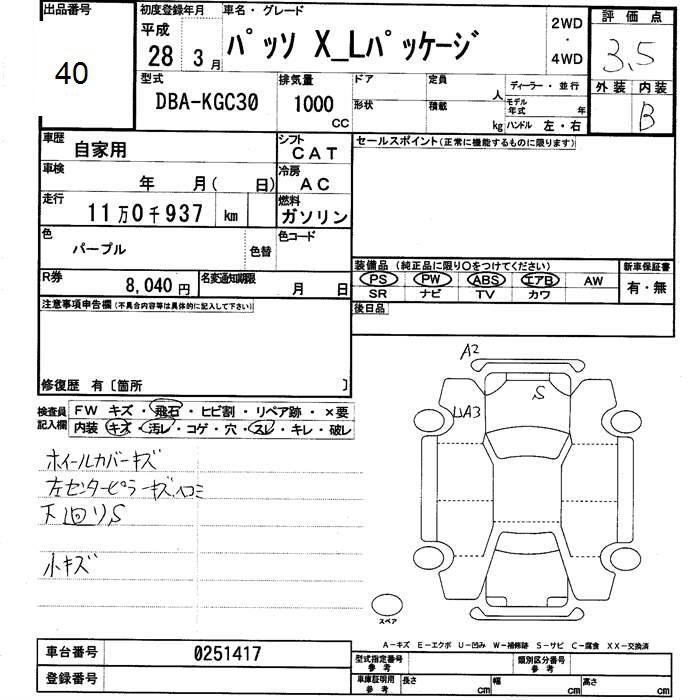 出品番号 初度登録年月 車名・グレード 2WD・4WD 評価点
40 平成 28 3月 パッソ X_Lパッケージ 3.5
型式 排気量 ドア 定員 人 ディーラー・並行 外装 内装
DBA-KGC30 1000 CC 形状 積載 kg モデル年式 年 B
ハンドル 左・右
車歴 自家用 シフト CAT セールスポイント(正常に機能するものに限ります)
車検 年 月( 日) 冷房 AC
走行 11万0千937 km 燃料 ガソリン
色 パープル 色替 色コード
装備品 (純正品に限り○をつけてください) 新車保証書
R券 8,040円 名変通知期限 月 日 PS PW ABS エアB AW 有・無
SR ナビ TV カワ
注意事項申告欄(不具合内容等は具体的に記入して下さい) 後日品
修復歴 有〔箇所 〕
検査員記入欄 FW キズ・飛石・ヒビ割・リペア跡・×要
内装 キズ・汚レ・コゲ・穴・スレ・キレ・破レ
A2
S
UA3
ホイールカバーキズ
左センターピラーキズ、ヘコミ
下回りS
小キズ
スペア
A-キズ E-エクボ U-凹み W-補修跡 S-サビ C-腐食 XX-交換済
車台番号 0251417 型式指定番号 参考 類別区分番号 参考
登録番号 車庫証明用 参考 長さ cm 幅 cm 高さ cm